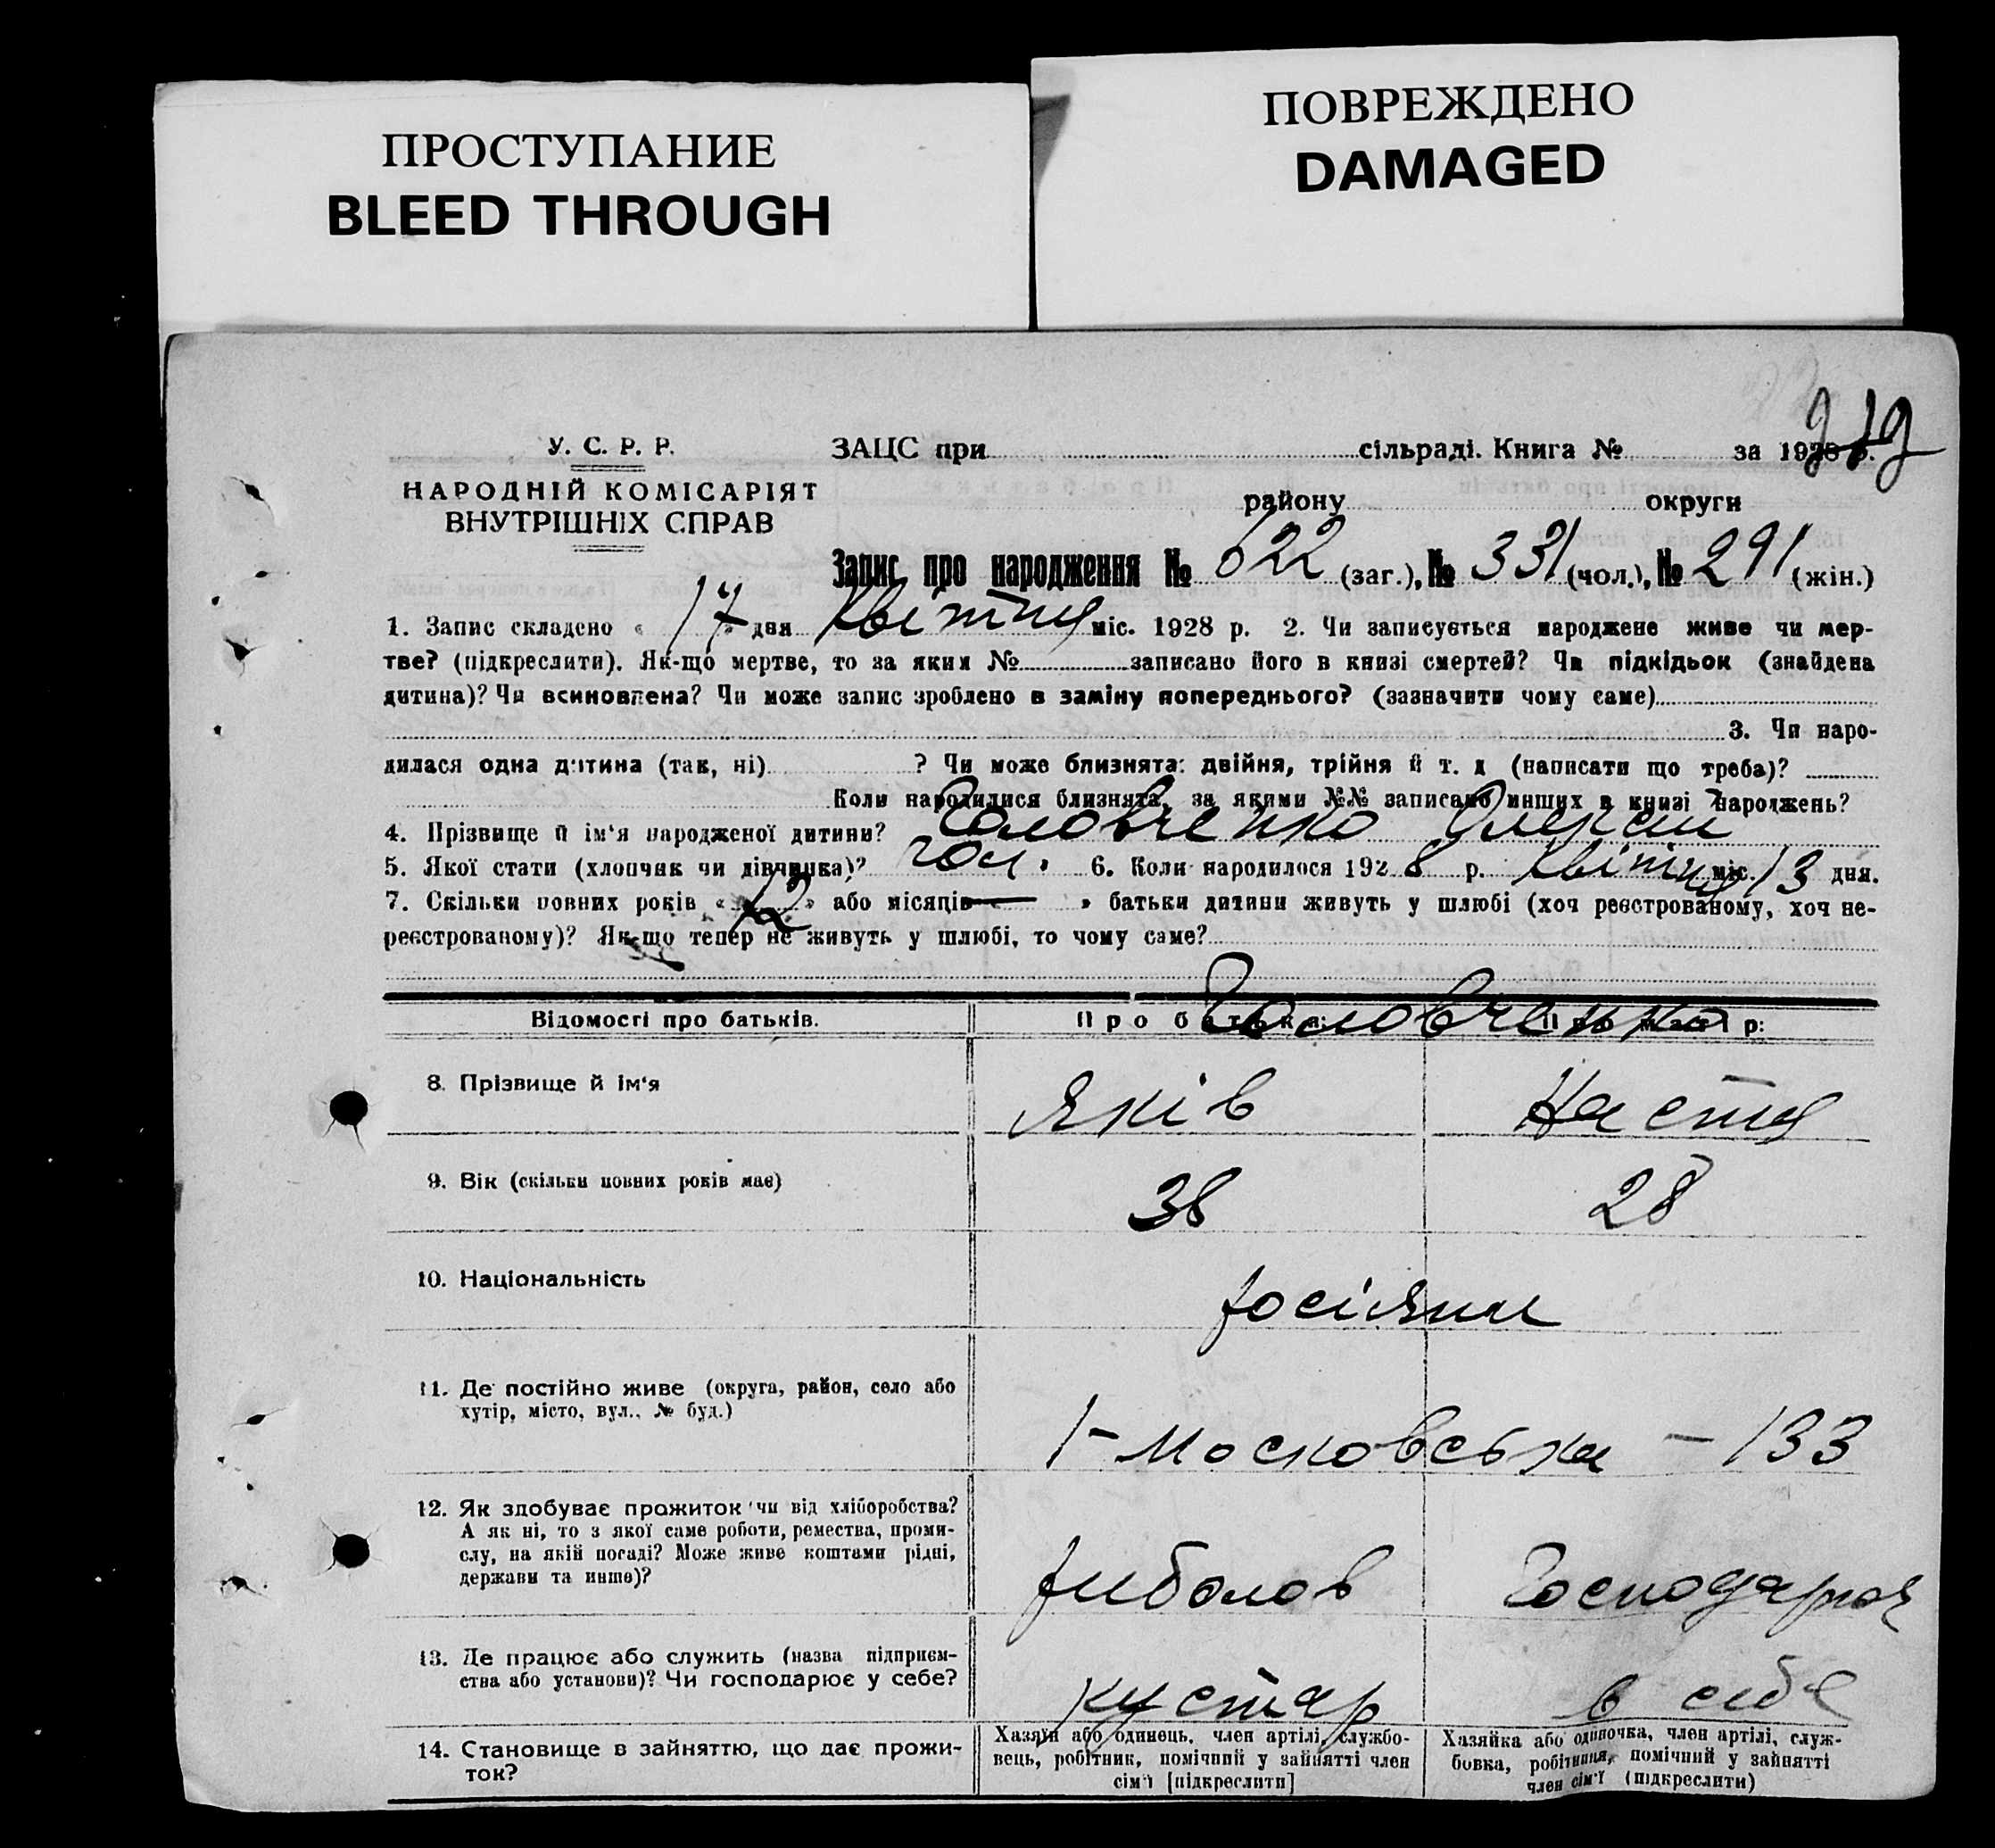 ПРОСТУПАНИЕ
BLEED THROUGH
ПОВРЕЖДЕНО
DAMAGED
У. С. Р. Р.
НАРОДНІЙ КОМІСАРІЯТ
ВНУТРІШНІХ СПРАВ
ЗАЦС при сільраді. Книга № за 1928 р.
району округи
Запис про народження № 622 (заг.), № 331 (чол.), № 291 (жін.)
1. Запис складено « 17 » дня Квітня міс. 1928 р. 2. Чи записується народжене живе чи мер-
тве? (підкреслити). Як-що мертве, то за яким № записано його в книзі смертей? Чи підкідьок (знайдена
дитина)? Чи всиновлена? Чи може запис зроблено в заміну попереднього? (зазначити чому саме)
3. Чи наро-
дилася одна дитина (так, ні) ? Чи може близнята: двійня, трійня й т. д (написати що треба)?
Коли народилися близнята, за якими №№ записано инших в книзі народжень?
4. Прізвище й ім‘я народженої дитини? Головченко Олексій
5. Якої стати (хлопчик чи дівчинка)? чол. 6. Коли народилося 1928 р. Квітня міс. 13 дня.
7. Скільки повних років « 12 » або місяців « — » батьки дитини живуть у шлюбі (хоч реєстрованому, хоч не-
реєстрованому)? Як-що тепер не живуть у шлюбі, то чому саме?
Головченко
Відомості про батьків. Про батька: Про матір:
8. Прізвище й ім‘я Яків Настя
9. Вік (скільки повних років має) 38 28
10. Національність росіяни
11. Де постійно живе (округа, район, село або
хутір, місто, вул., № буд.)
1-Московська — 133
12. Як здобуває прожиток чи від хліборобства?
А як ні, то з якої саме роботи, ремества, проми-
слу, на якій посаді? Може живе коштами рідні,
держави та инше)?
риболов Господарює
13. Де працює або служить (назва підприєм-
ства або установи)? Чи господарює у себе?
кустар в себе
14. Становище в зайняттю, що дає прожи-
ток?
Хазяїн або одинець, член артілі, службо-
вець, робітник, помічний у зайнятті член
сім‘ї [підкреслити]
Хазяйка або одиночка, член артілі, служ-
бовка, робітниця, помічний у зайнятті
член сім‘ї (підкреслити)